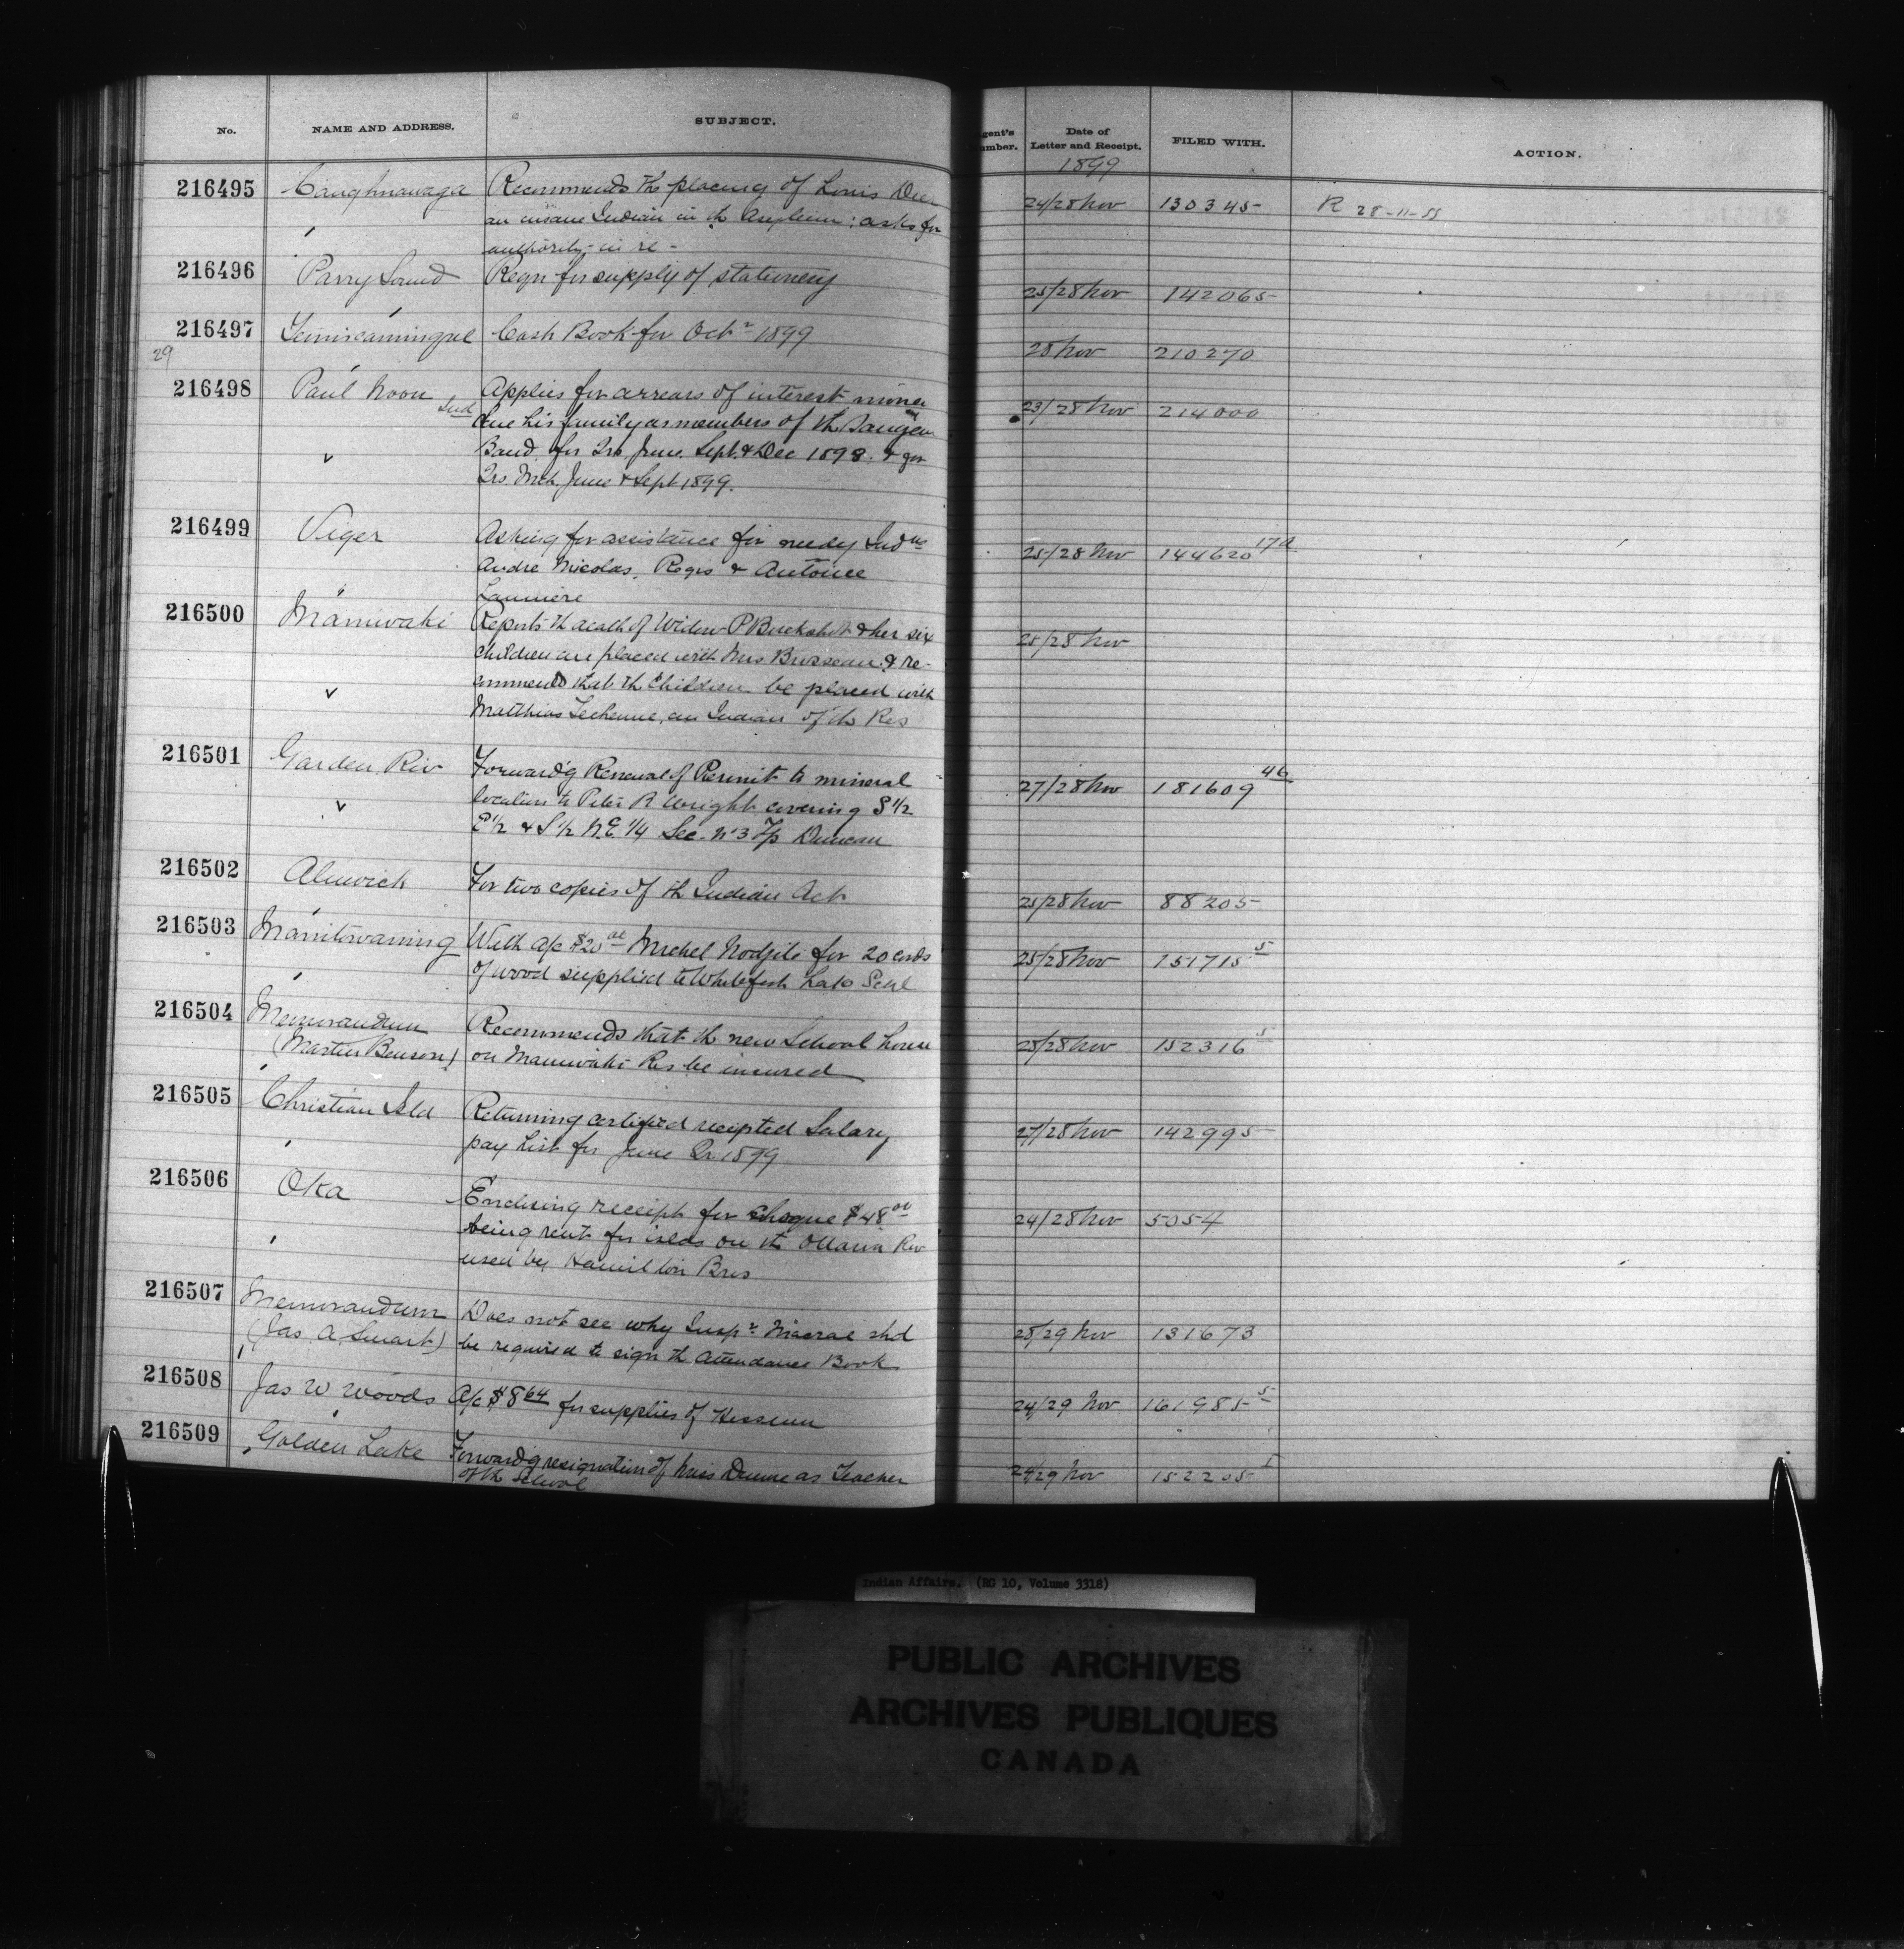 No. NAME AND ADDRESS. SUBJECT. Agent's Number. Date of Letter and Receipt. FILED WITH. ACTION.
1899
216495 Caughnawaga Recommends the placing of Louis Deer 24/28 Nov 130345 R 28-11-99
an insane Indian in th Asylum; asks for
authority in re -
216496 Parry Sound Reqn for supply of stationery 25/28 Nov 142065
216497 Temiscamingue Cash Book for Octr 1899 28 Nov 210270
29
216498 Paul Noon Ind Applies for arrears of interest money 23/28 Nov 214000
due his family as members of th Saugeen
Band for Qrs June, Sept & Dec 1898 & for
Qrs Mch June & Sept 1899.
216499 Viger Asking for assistance for needy Indns 25/28 Nov 144620 17a
Andre Nicolas, Regis & Antoine
Launiere
216500 Maniwaki Reports th death of Widow P Buckshot & her six 25/28 Nov
children are placed with Mrs Brosseau & re-
commends that th Children be placed with
Matthias Techenne, an Indian of th Res
216501 Garden Riv Forward'g Renewal of Permit to mineral 27/28 Nov 181609 46
location to Peter R Wright covering S 1/2
E 1/2 & S 1/2 N.E. 1/4 Sec. No 3 Tp Duncan
216502 Alnwick For two copies of th Indian Act 25/28 Nov 88205
216503 Manitowaning With a/c $20 00 Michel Nodjile for 20 cords 25/28 Nov 151715 5
of wood supplied to Whitefish Lake Schl
216504 Memorandum Recommends that th new School house 25/28 Nov 152316 5
(Martin Benson) on Maniwaki Res be insured
216505 Christian Isld Returning certified receipted Salary 27/28 Nov 142995
pay list for June Qr 1899
216506 Oka Enclosing receipt for cheque $48 00 24/28 Nov 5054
being rent for islds on th Ottawa Riv
used by Hamilton Bros
216507 Memorandum Does not see why Inspr Macrae shd 28/29 Nov 131673
(Jas. A. Smart) be required to sign th Attendance Book
216508 Jas W Woods A/c $8 64 for supplies of Hessian 24/29 Nov 161985 5
216509 Golden Lake Forward'g resignation of Miss Dunne as Teacher 24/29 Nov 152205 1
of th School
Indian Affairs. (RG 10, Volume 3318)
PUBLIC ARCHIVES
ARCHIVES PUBLIQUES
CANADA